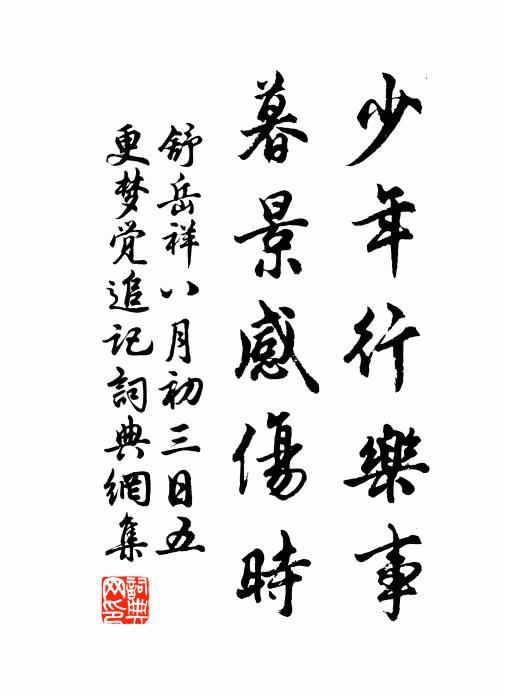 少年行樂事
暮景感傷時
舒岳祥八月初三日五
更梦觉追记詞典網集
詞典网印